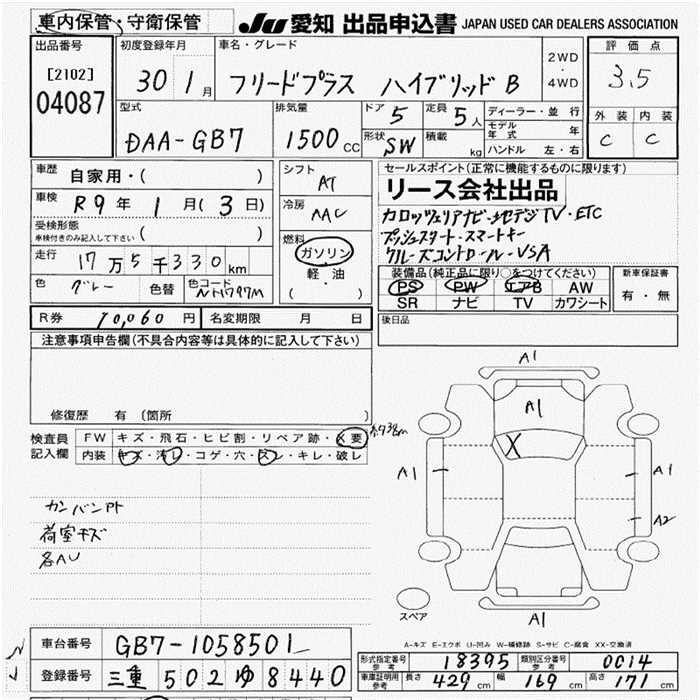 車内保管・守衛保管
JU 愛知 出品申込書 JAPAN USED CAR DEALERS ASSOCIATION
出品番号 初度登録年月 車名・グレード 評価点
[2102]
04087
30 1月 フリードプラス ハイブリッドB 2WD・4WD 3.5
型式 排気量 ドア 5 定員 5人 ディーラー・並行 外装 内装
DAA-GB7 1500cc 形状 SW 積載 kg モデル年式 年 C C
ハンドル 左・右
車歴 自家用・( )
シフト AT
セールスポイント(正常に機能するものに限ります)
リース会社出品
車検 R9年 1月(3日)
冷房 AAC
カロッツェリアナビ・地デジTV・ETC
プッシュスタート・スマートキー
クルーズコントロール・VSA
受検形態
車検付きのみ記入して下さい ( )
燃料 ガソリン
軽・油
( )
走行 17万5千330km
色 グレー 色替 色コード NH797M
装備品(純正品に限り○をつけてください) 新車保証書
PS PW エアB AW 有・無
SR ナビ TV カワシート
R券 10,060円 名変期限 月 日
後日品
注意事項申告欄(不具合内容等は具体的に記入して下さい)
修復歴 有(箇所 )
検査員
記入欄
FW キズ・飛石・ヒビ割・リペア跡・X要
内装 キズ・汚レ・コゲ・穴・スレ・キレ・破レ
カンバンアト
荷室キズ
各AU
A1
A1
X
A1 A1
A2
スペア
A1
A-キズ E-エクボ U-凹み W-補修跡 S-サビ C-腐食 XX-交換済
車台番号 GB7-1058501
登録番号 三重 502 ゆ 8440
形式指定番号 参考 18395 類別区分番号 参考 0014
車庫証明用 参考 長さ 429cm 幅 169cm 高さ 171cm